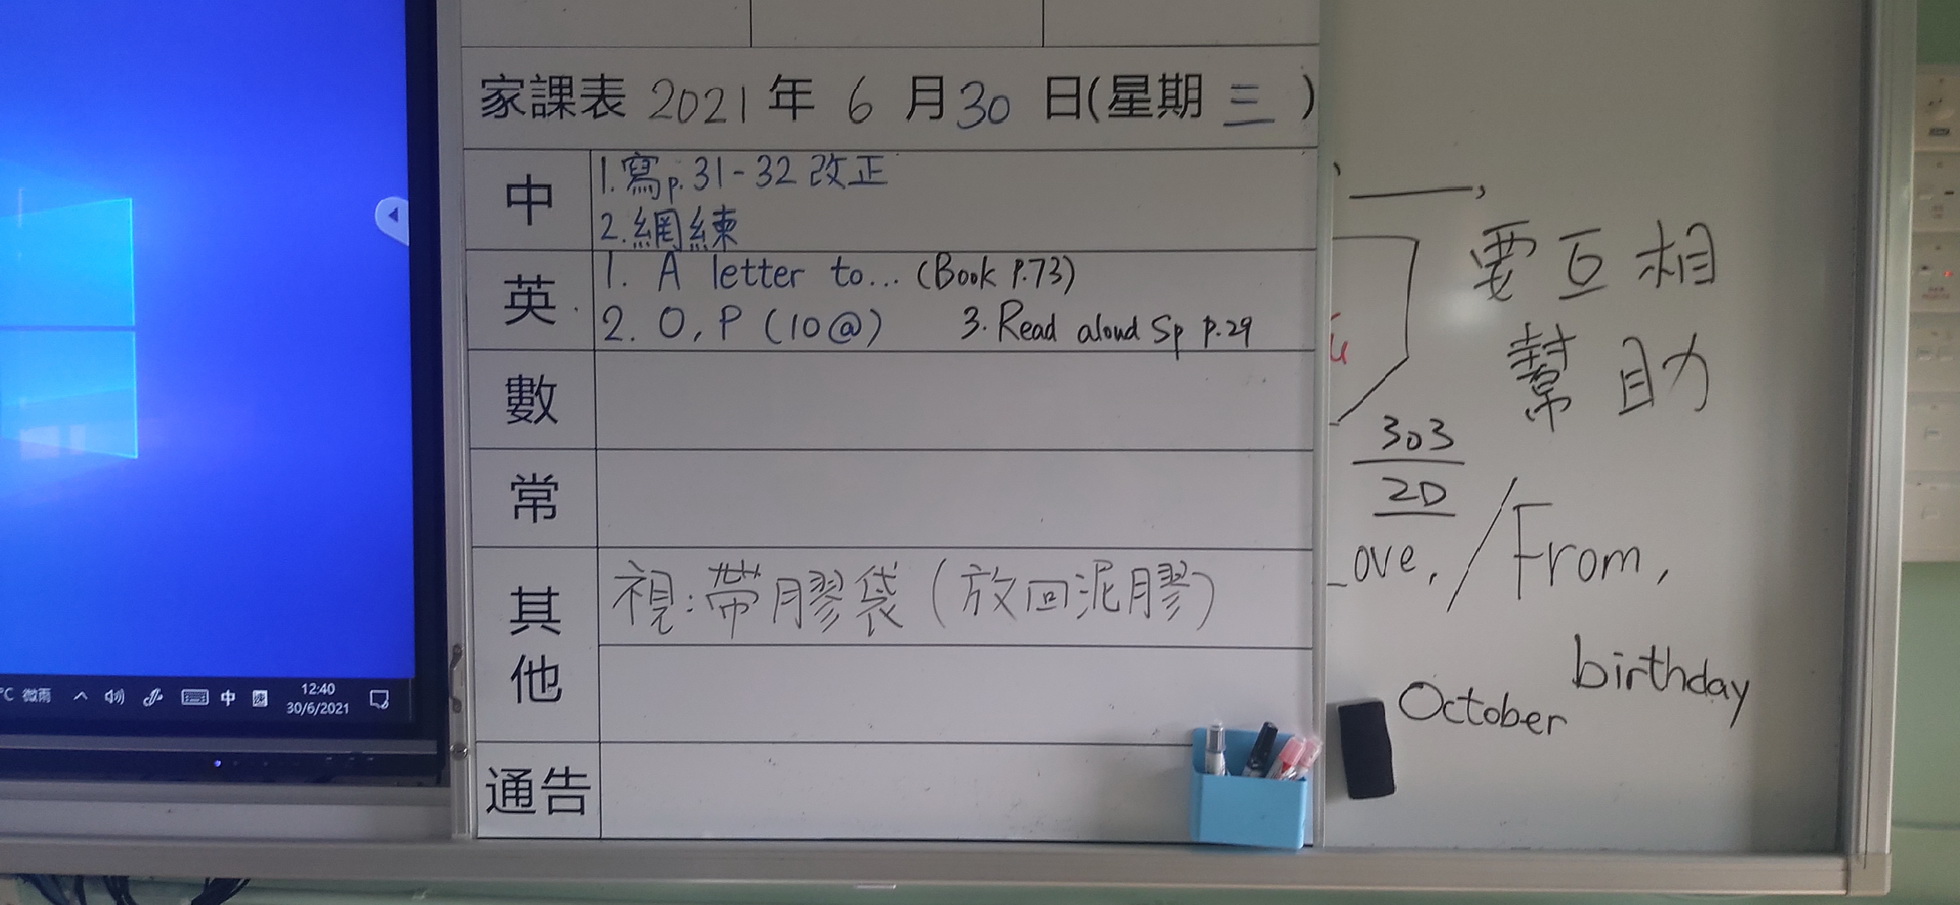 家課表 2021 年 6 月 30 日(星期 三 )
中
1. 寫p. 31-32 改正
2. 網練
英
1. A letter to... (Book P.73)
2. O, P (10@) 3. Read aloud Sp P.29
數
常
其他
視:帶膠袋(放回泥膠)
通告
要互相
幫助
303
2D
ove, / From,
birthday
October
°C 微雨 中
12:40
30/6/2021